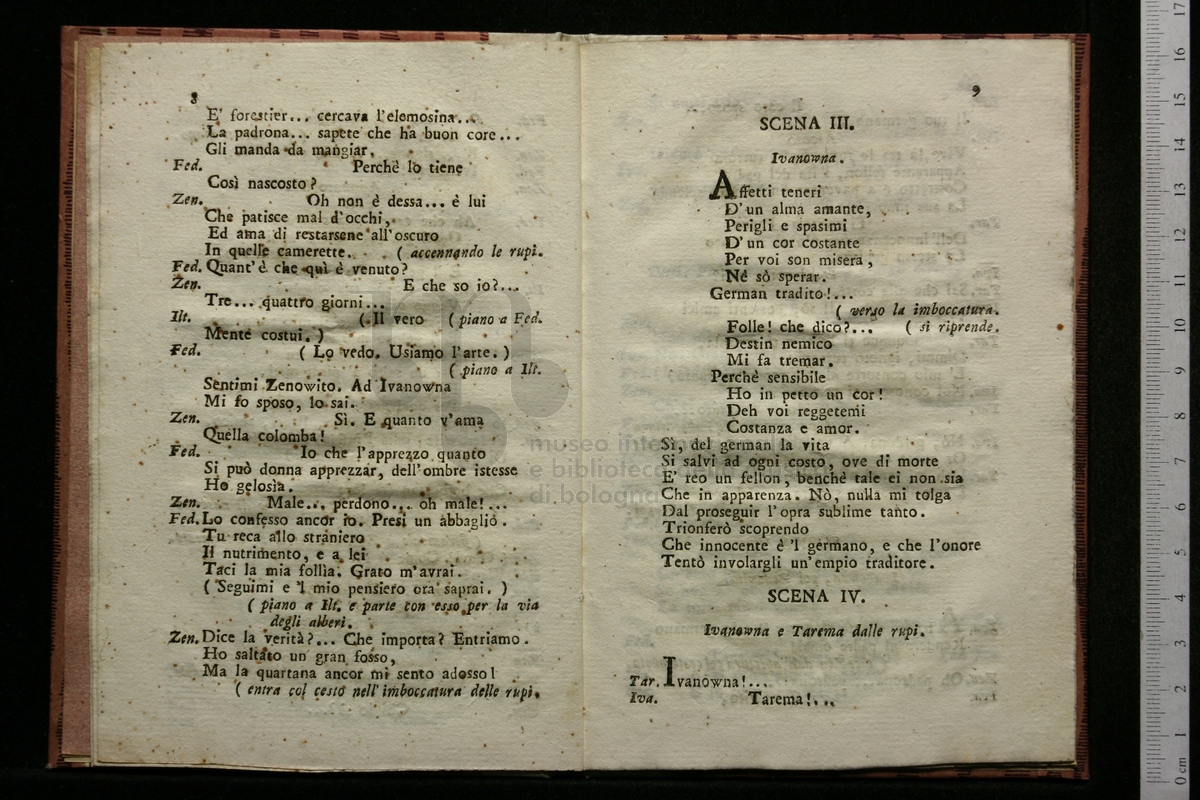 8
E' forestier... cercava l'elemosina...
La padrona... sapete che ha buon core...
Gli manda da mangiar.
Fed. Perchè lo tiene
Così nascosto?
Zen. Oh non è dessa... è lui
Che patisce mal d'occhi,
Ed ama di restarsene all'oscuro
In quelle camerette. ( accennando le rupi.
Fed. Quant'è che quì è venuto?
Zen. E che so io?...
Tre... quattro giorni...
Ilt. ( Il vero ( piano a Fed.
Mente costui. )
Fed. ( Lo vedo. Usiamo l'arte. )
( piano a Ilt.
Sentimi Zenowito. Ad Ivanowna
Mi fo sposo, lo sai.
Zen. Sì. E quanto v'ama
Quella colomba!
Fed. Io che l'apprezzo quanto
Si può donna apprezzar, dell'ombre istesse
Ho gelosìa.
Zen. Male... perdono... oh male!...
Fed. Lo confesso ancor io. Presi un abbaglio.
Tu reca allo straniero
Il nutrimento, e a lei
Taci la mia follìa. Grato m'avrai.
( Seguimi e 'l mio pensiero ora saprai. )
( piano a Ilt. e parte con esso per la via
degli alberi.
Zen. Dice la verità?... Che importa? Entriamo.
Ho saltato un gran fosso,
Ma la quartana ancor mi sento adosso!
( entra col cesto nell'imboccatura delle rupi.
9
SCENA III.
Ivanowna.
Affetti teneri
D'un alma amante,
Perigli e spasimi
D'un cor costante
Per voi son misera,
Né sò sperar.
German tradito!...
( verso la imboccatura.
Folle! che dico?... ( si riprende.
Destin nemico
Mi fa tremar.
Perchè sensibile
Ho in petto un cor!
Deh voi reggetemi
Costanza e amor.
Sì, del german la vita
Si salvi ad ogni costo, ove di morte
E' reo un fellon, benchè tale ei non sia
Che in apparenza. Nò, nulla mi tolga
Dal proseguir l'opra sublime tanto.
Trionferò scoprendo
Che innocente è 'l germano, e che l'onore
Tentò involargli un'empio traditore.
SCENA IV.
Ivanowna e Tarema dalle rupi.
Tar. Ivanowna!...
Iva. Tarema!...
museo inter
e bibliote
di bologna
17
16
15
14
13
12
11
10
9
8
7
6
5
4
3
2
1
0 cm